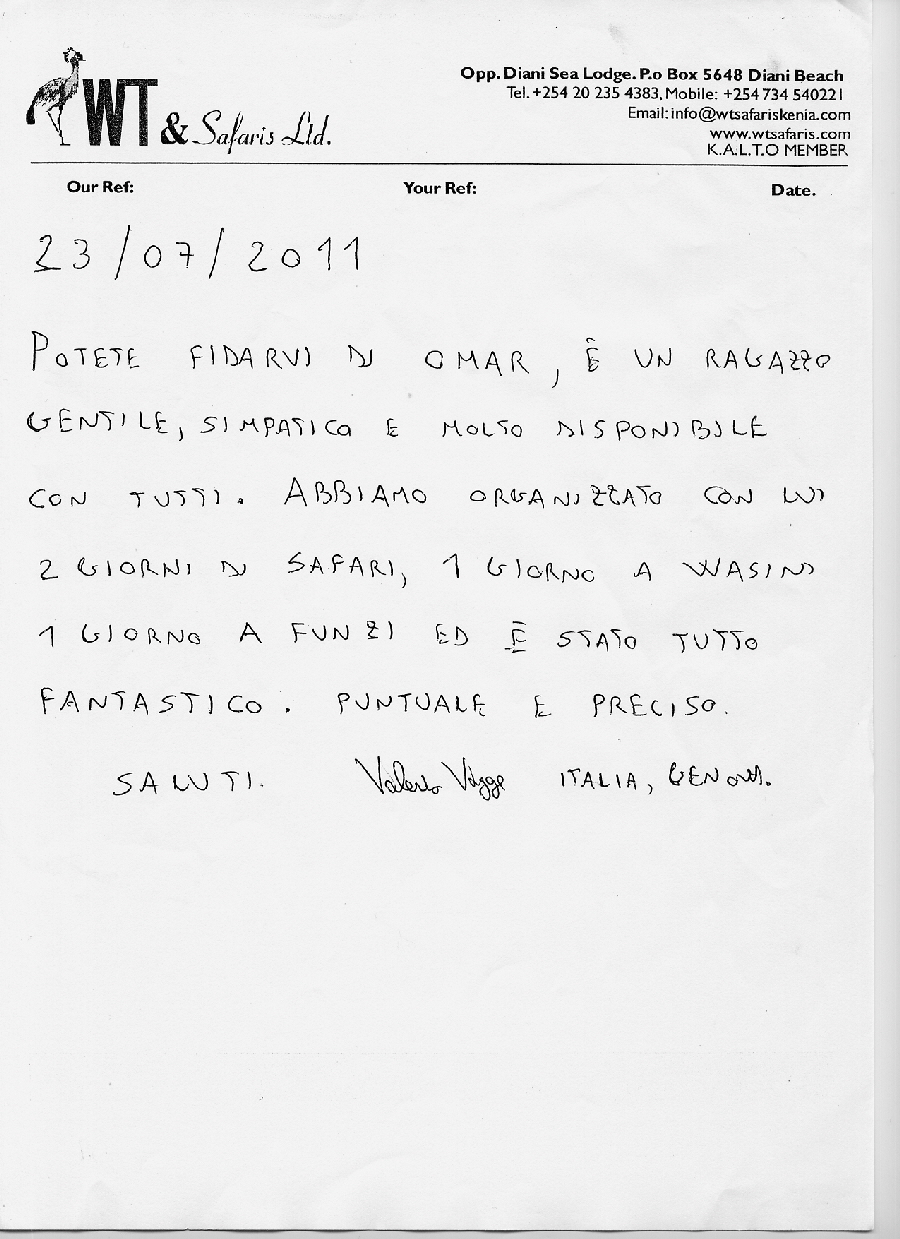 WT & Safaris Ltd.
Opp. Diani Sea Lodge. P.o Box 5648 Diani Beach
Tel. +254 20 235 4383, Mobile: +254 734 540221
Email: info@wtsafariskenia.com
www.wtsafaris.com
K.A.L.T.O MEMBER
Our Ref: Your Ref: Date.
23/07/2011
POTETE FIDARVI DI OMAR, È UN RAGAZZO
GENTILE, SIMPATICO E MOLTO DISPONIBILE
CON TUTTI. ABBIAMO ORGANIZZATO CON LUI
2 GIORNI DI SAFARI, 1 GIORNO A WASINI
1 GIORNO A FUNZI ED È STATO TUTTO
FANTASTICO. PUNTUALE E PRECISO.
SALUTI. ITALIA,